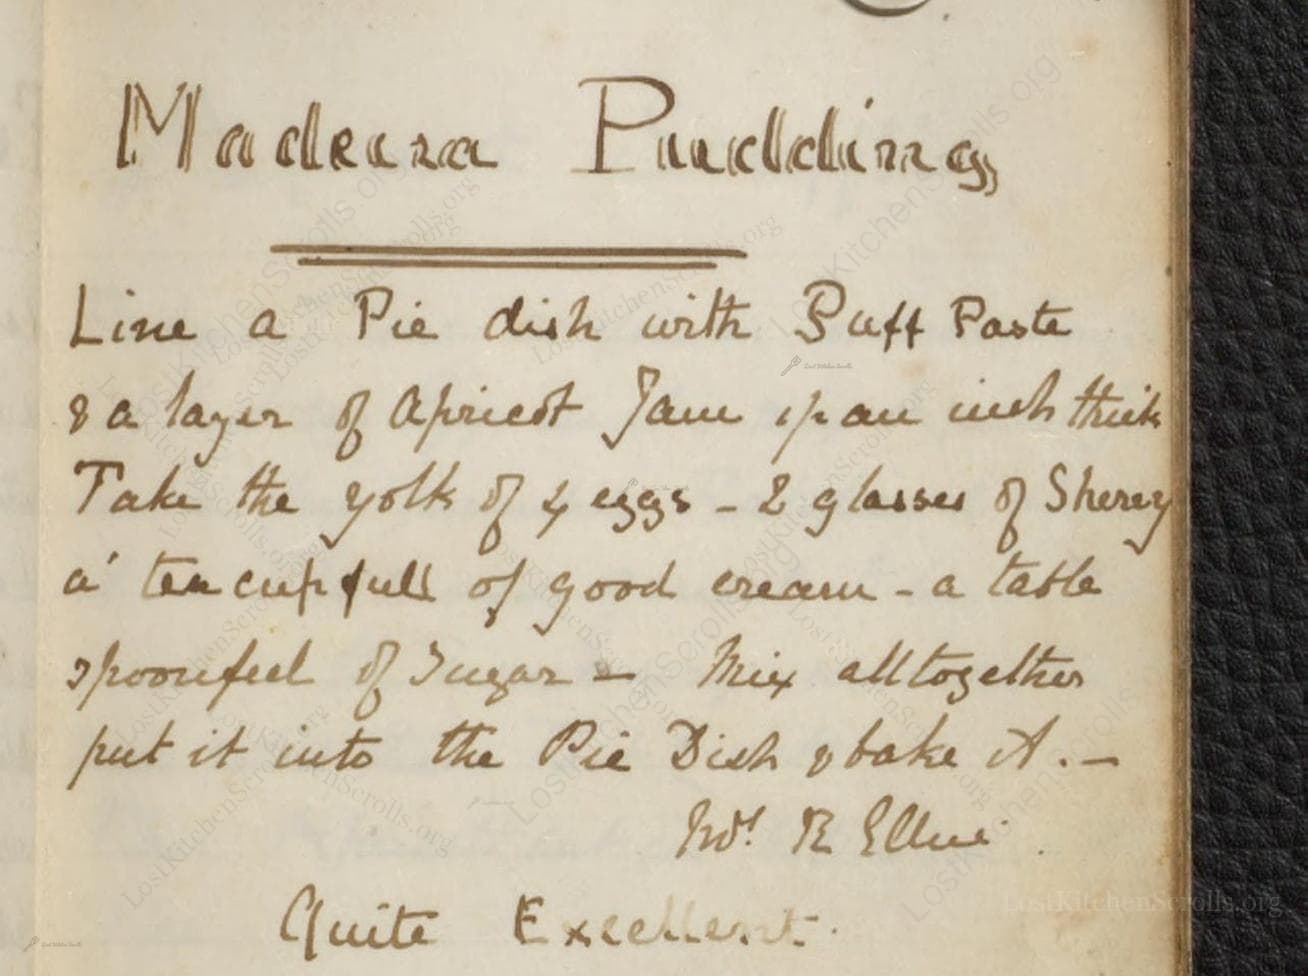 Madeira Pudding
Line a Pie dish with Puff Paste
& a layer of Apricot Jam up an inch thick
Take the yolk of 4 eggs - 2 glasses of Sherry
a tea cup full of good cream - a table
spoonfull of Sugar - Mix alltogether
put it into the Pie Dish & bake it. -
R
Quite Excellent.
LostKitchenScrolls.org